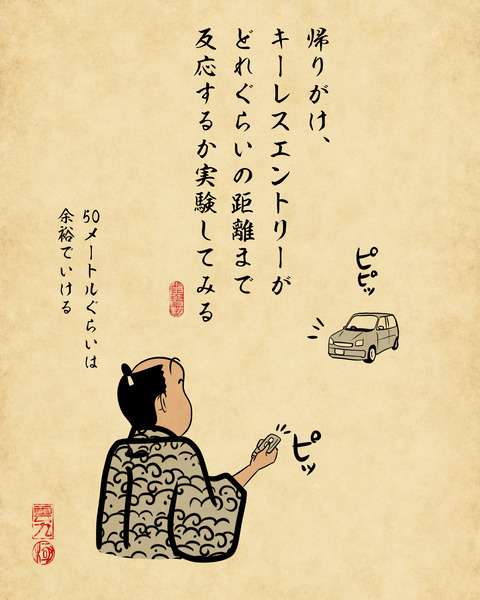 帰りがけ、
キーレスエントリーが
どれぐらいの距離まで
反応するか実験してみる
ピピッ
ピッ
50メートルぐらいは
余裕でいける